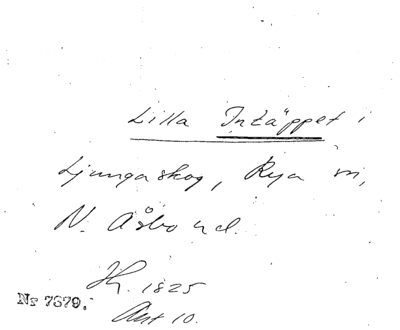 Lilla Intäppet i
Ljungaskog, Rya sn,
N. Åsbo hd.
Hf. 1825
Akt 10.
Nr 7679.